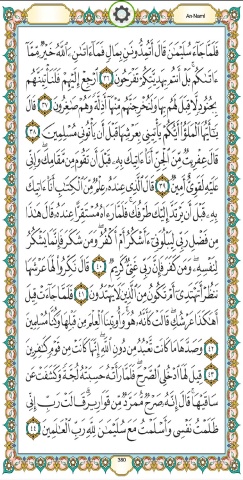 An-Naml
فَلَمَّا جَآءَ سُلَيْمَٰنَ قَالَ أَتُمِدُّونَنِ بِمَالٍ فَمَآ ءَاتَىٰنِۦَ ٱللَّهُ خَيْرٌ مِّمَّآ
ءَاتَىٰكُم بَلْ أَنتُم بِهَدِيَّتِكُمْ تَفْرَحُونَ ٣٦ ٱرْجِعْ إِلَيْهِمْ فَلَنَأْتِيَنَّهُم
بِجُنُودٍ لَّا قِبَلَ لَهُم بِهَا وَلَنُخْرِجَنَّهُم مِّنْهَآ أَذِلَّةً وَهُمْ صَٰغِرُونَ ٣٧ قَالَ
يَٰٓأَيُّهَا ٱلْمَلَؤُا۟ أَيُّكُمْ يَأْتِينِى بِعَرْشِهَا قَبْلَ أَن يَأْتُونِى مُسْلِمِينَ ٣٨
قَالَ عِفْرِيتٌ مِّنَ ٱلْجِنِّ أَنَا۠ ءَاتِيكَ بِهِۦ قَبْلَ أَن تَقُومَ مِن مَّقَامِكَ وَإِنِّى
عَلَيْهِ لَقَوِىٌّ أَمِينٌ ٣٩ قَالَ ٱلَّذِى عِندَهُۥ عِلْمٌ مِّنَ ٱلْكِتَٰبِ أَنَا۠ ءَاتِيكَ
بِهِۦ قَبْلَ أَن يَرْتَدَّ إِلَيْكَ طَرْفُكَ فَلَمَّا رَءَاهُ مُسْتَقِرًّا عِندَهُۥ قَالَ هَٰذَا
مِن فَضْلِ رَبِّى لِيَبْلُوَنِىٓ ءَأَشْكُرُ أَمْ أَكْفُرُ وَمَن شَكَرَ فَإِنَّمَا يَشْكُرُ
لِنَفْسِهِۦ وَمَن كَفَرَ فَإِنَّ رَبِّى غَنِىٌّ كَرِيمٌ ٤٠ قَالَ نَكِّرُوا۟ لَهَا عَرْشَهَا
نَنظُرْ أَتَهْتَدِىٓ أَمْ تَكُونُ مِنَ ٱلَّذِينَ لَا يَهْتَدُونَ ٤١ فَلَمَّا جَآءَتْ قِيلَ
أَهَٰكَذَا عَرْشُكِ قَالَتْ كَأَنَّهُۥ هُوَ وَأُوتِينَا ٱلْعِلْمَ مِن قَبْلِهَا وَكُنَّا مُسْلِمِينَ
٤٢ وَصَدَّهَا مَا كَانَت تَّعْبُدُ مِن دُونِ ٱللَّهِ إِنَّهَا كَانَتْ مِن قَوْمٍ كَٰفِرِينَ
٤٣ قِيلَ لَهَا ٱدْخُلِى ٱلصَّرْحَ فَلَمَّا رَأَتْهُ حَسِبَتْهُ لُجَّةً وَكَشَفَتْ عَن
سَاقَيْهَا قَالَ إِنَّهُۥ صَرْحٌ مُّمَرَّدٌ مِّن قَوَارِيرَ قَالَتْ رَبِّ إِنِّى
ظَلَمْتُ نَفْسِى وَأَسْلَمْتُ مَعَ سُلَيْمَٰنَ لِلَّهِ رَبِّ ٱلْعَٰلَمِينَ ٤٤
380